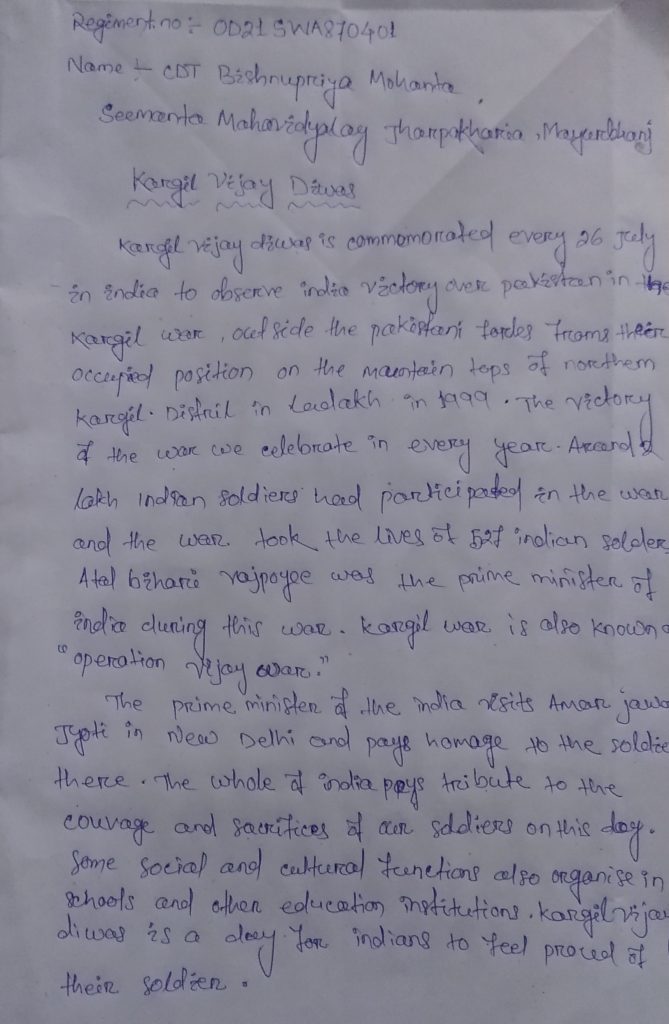 Regiment.no :- OD21SWA870401
Name :- CDT Bishnupriya Mohanta
Seemanta Mahavidyalay Jharpokharia, Mayurbhanj
Kargil Vijay Diwas
Kargil vijay diwas is commomorated every 26 july
in india to observe india victory over pakistan in the
Kargil war, outside the pakistani fordes froms their
occupied position on the mauntain tops of northern
Kargil. Distril in Ladakh in 1999. The victory
of the war we celebrate in every year. Around 2
lakh indian soldiers had participated in the war
and the war took the lives of 527 indian solder
Atal bihari vajpoyee was the prime minister of
india during this war. kargil war is also known
"operation vijay war."
The prime minister of the india visits Amar jawa
Jyoti in New Delhi and pays homage to the soldie
there. The whole of india pays tribute to the
couvage and sacrifices of our soldiers on this day.
Some social and cultural functions also organise in
schools and other education institutions. kargil vija
diwas is a day for indians to feel proud of
their soldier.